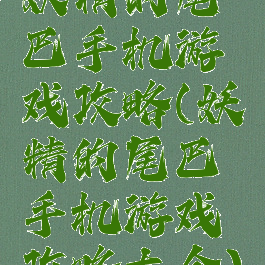 妖精的尾
巴手机游
戏攻略(妖
精的尾巴
手机游戏
攻略大全)